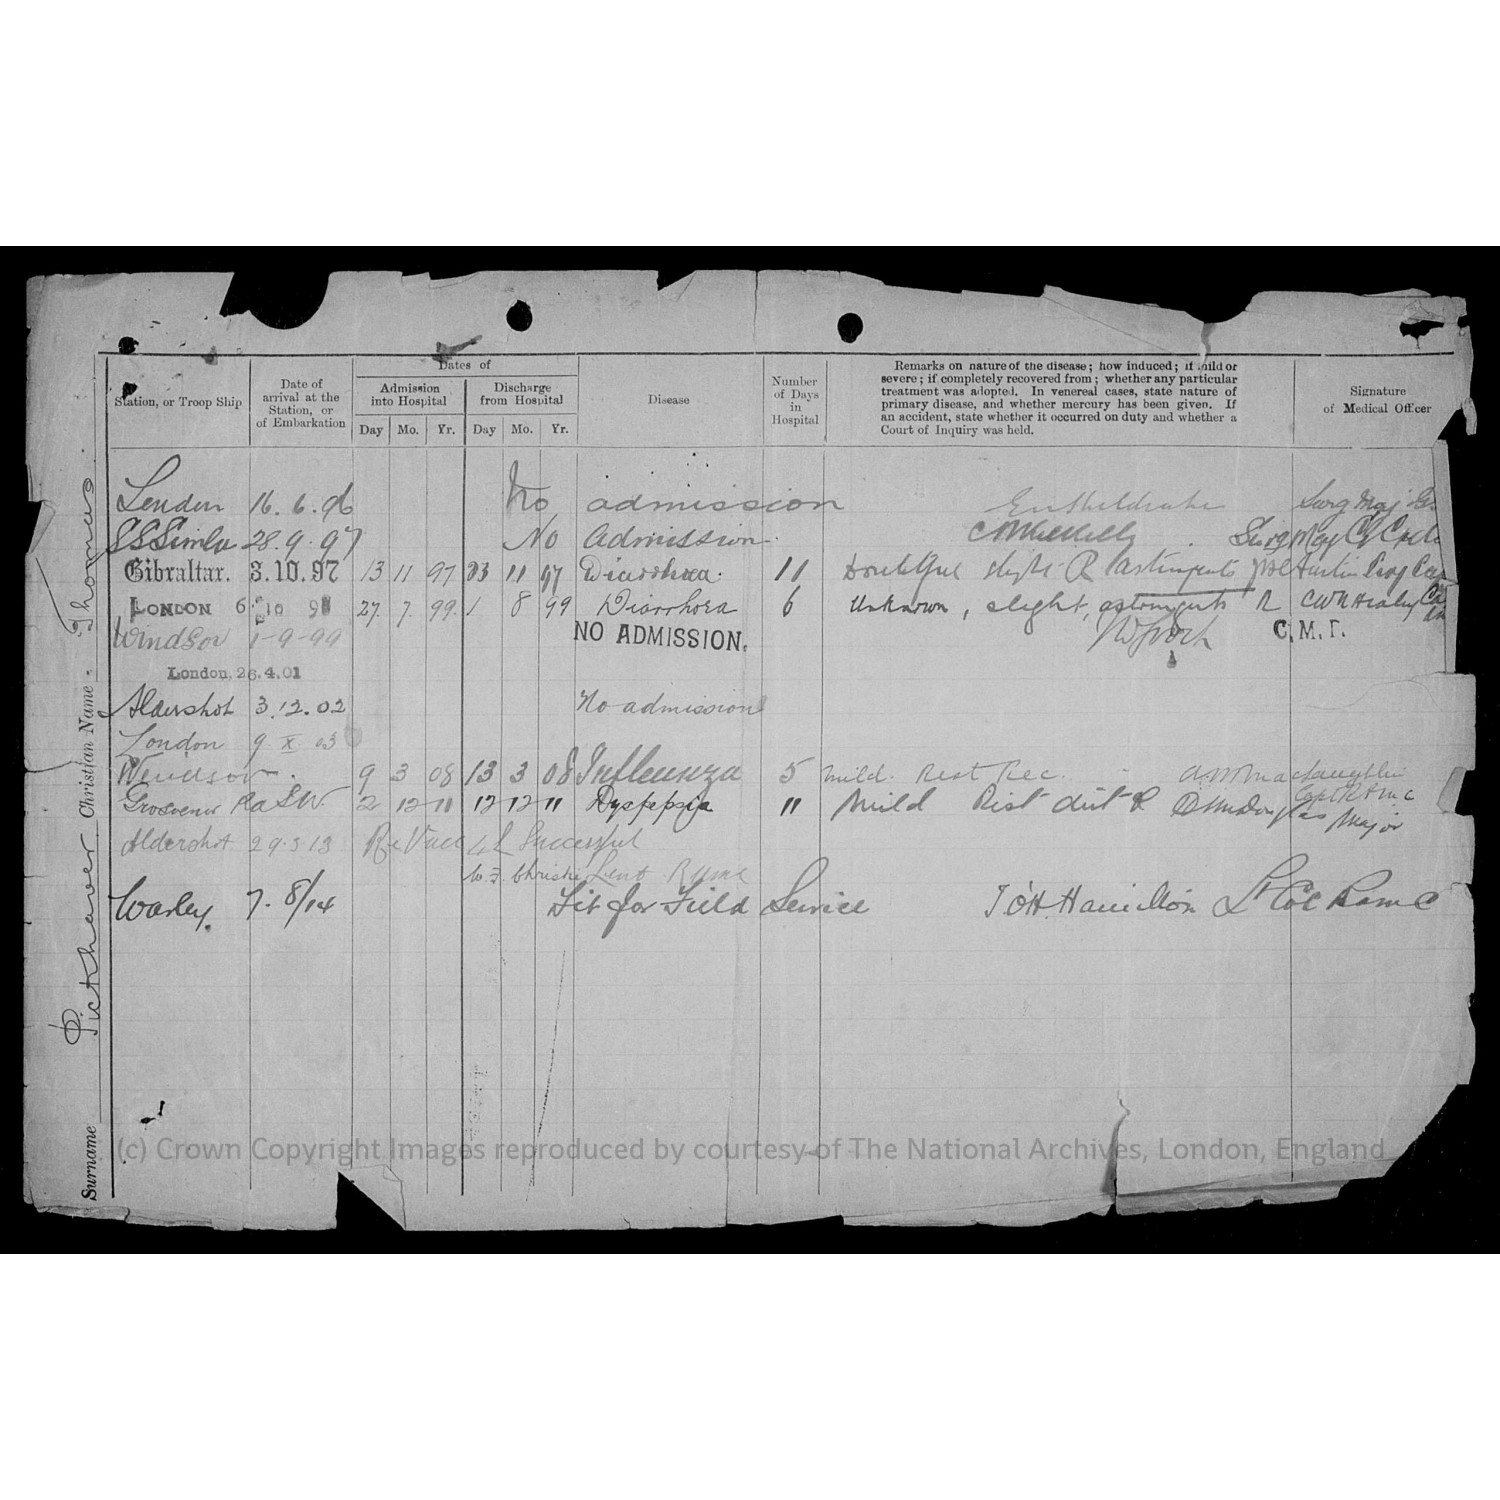 Surname Pickhaver Christian Name Thomas
Station, or Troop Ship
Date of arrival at the Station, or of Embarkation
Dates of
Admission into Hospital
Discharge from Hospital
Day Mo. Yr. Day Mo. Yr.
Disease
Number of Days in Hospital
Remarks on nature of the disease; how induced; if mild or
severe; if completely recovered from; whether any particular
treatment was adopted. In venereal cases, state nature of
primary disease, and whether mercury has been given. If
an accident, state whether it occurred on duty and whether a
Court of Inquiry was held.
Signature of Medical Officer
London 16.6.96 No admission Surg Maj
SS Simla 28.9.97 No Admission Surg Maj
Gibraltar. 3.10.97 13 11 97 23 11 97 Diarrhoea 11 Doubtful slight R Astringents
LONDON 6 10 9 27 7 99 1 8 99 Diarrhoea 6 Unknown, slight, astringents R
Windsor 1-9-99 NO ADMISSION. C.M.T.
London, 26.4.01
Aldershot 3.12.02 No admission
London 9 X 03
Windsor. 9 3 08 13 3 08 Influenza 5 Mild. Rest Rec. MacLaughlin
Capt RAMC
Grosvenor 2 12 11 12 12 11 Dyspepsia 11 Mild Rest diet R
Major
Aldershot 29.3.13 Re Vacc Successful
Christie Lieut RAMC
Warley. 7.8/14 Fit for Field Service Hamilton Lt Col RAMC
(c) Crown Copyright Images reproduced by courtesy of The National Archives, London, England